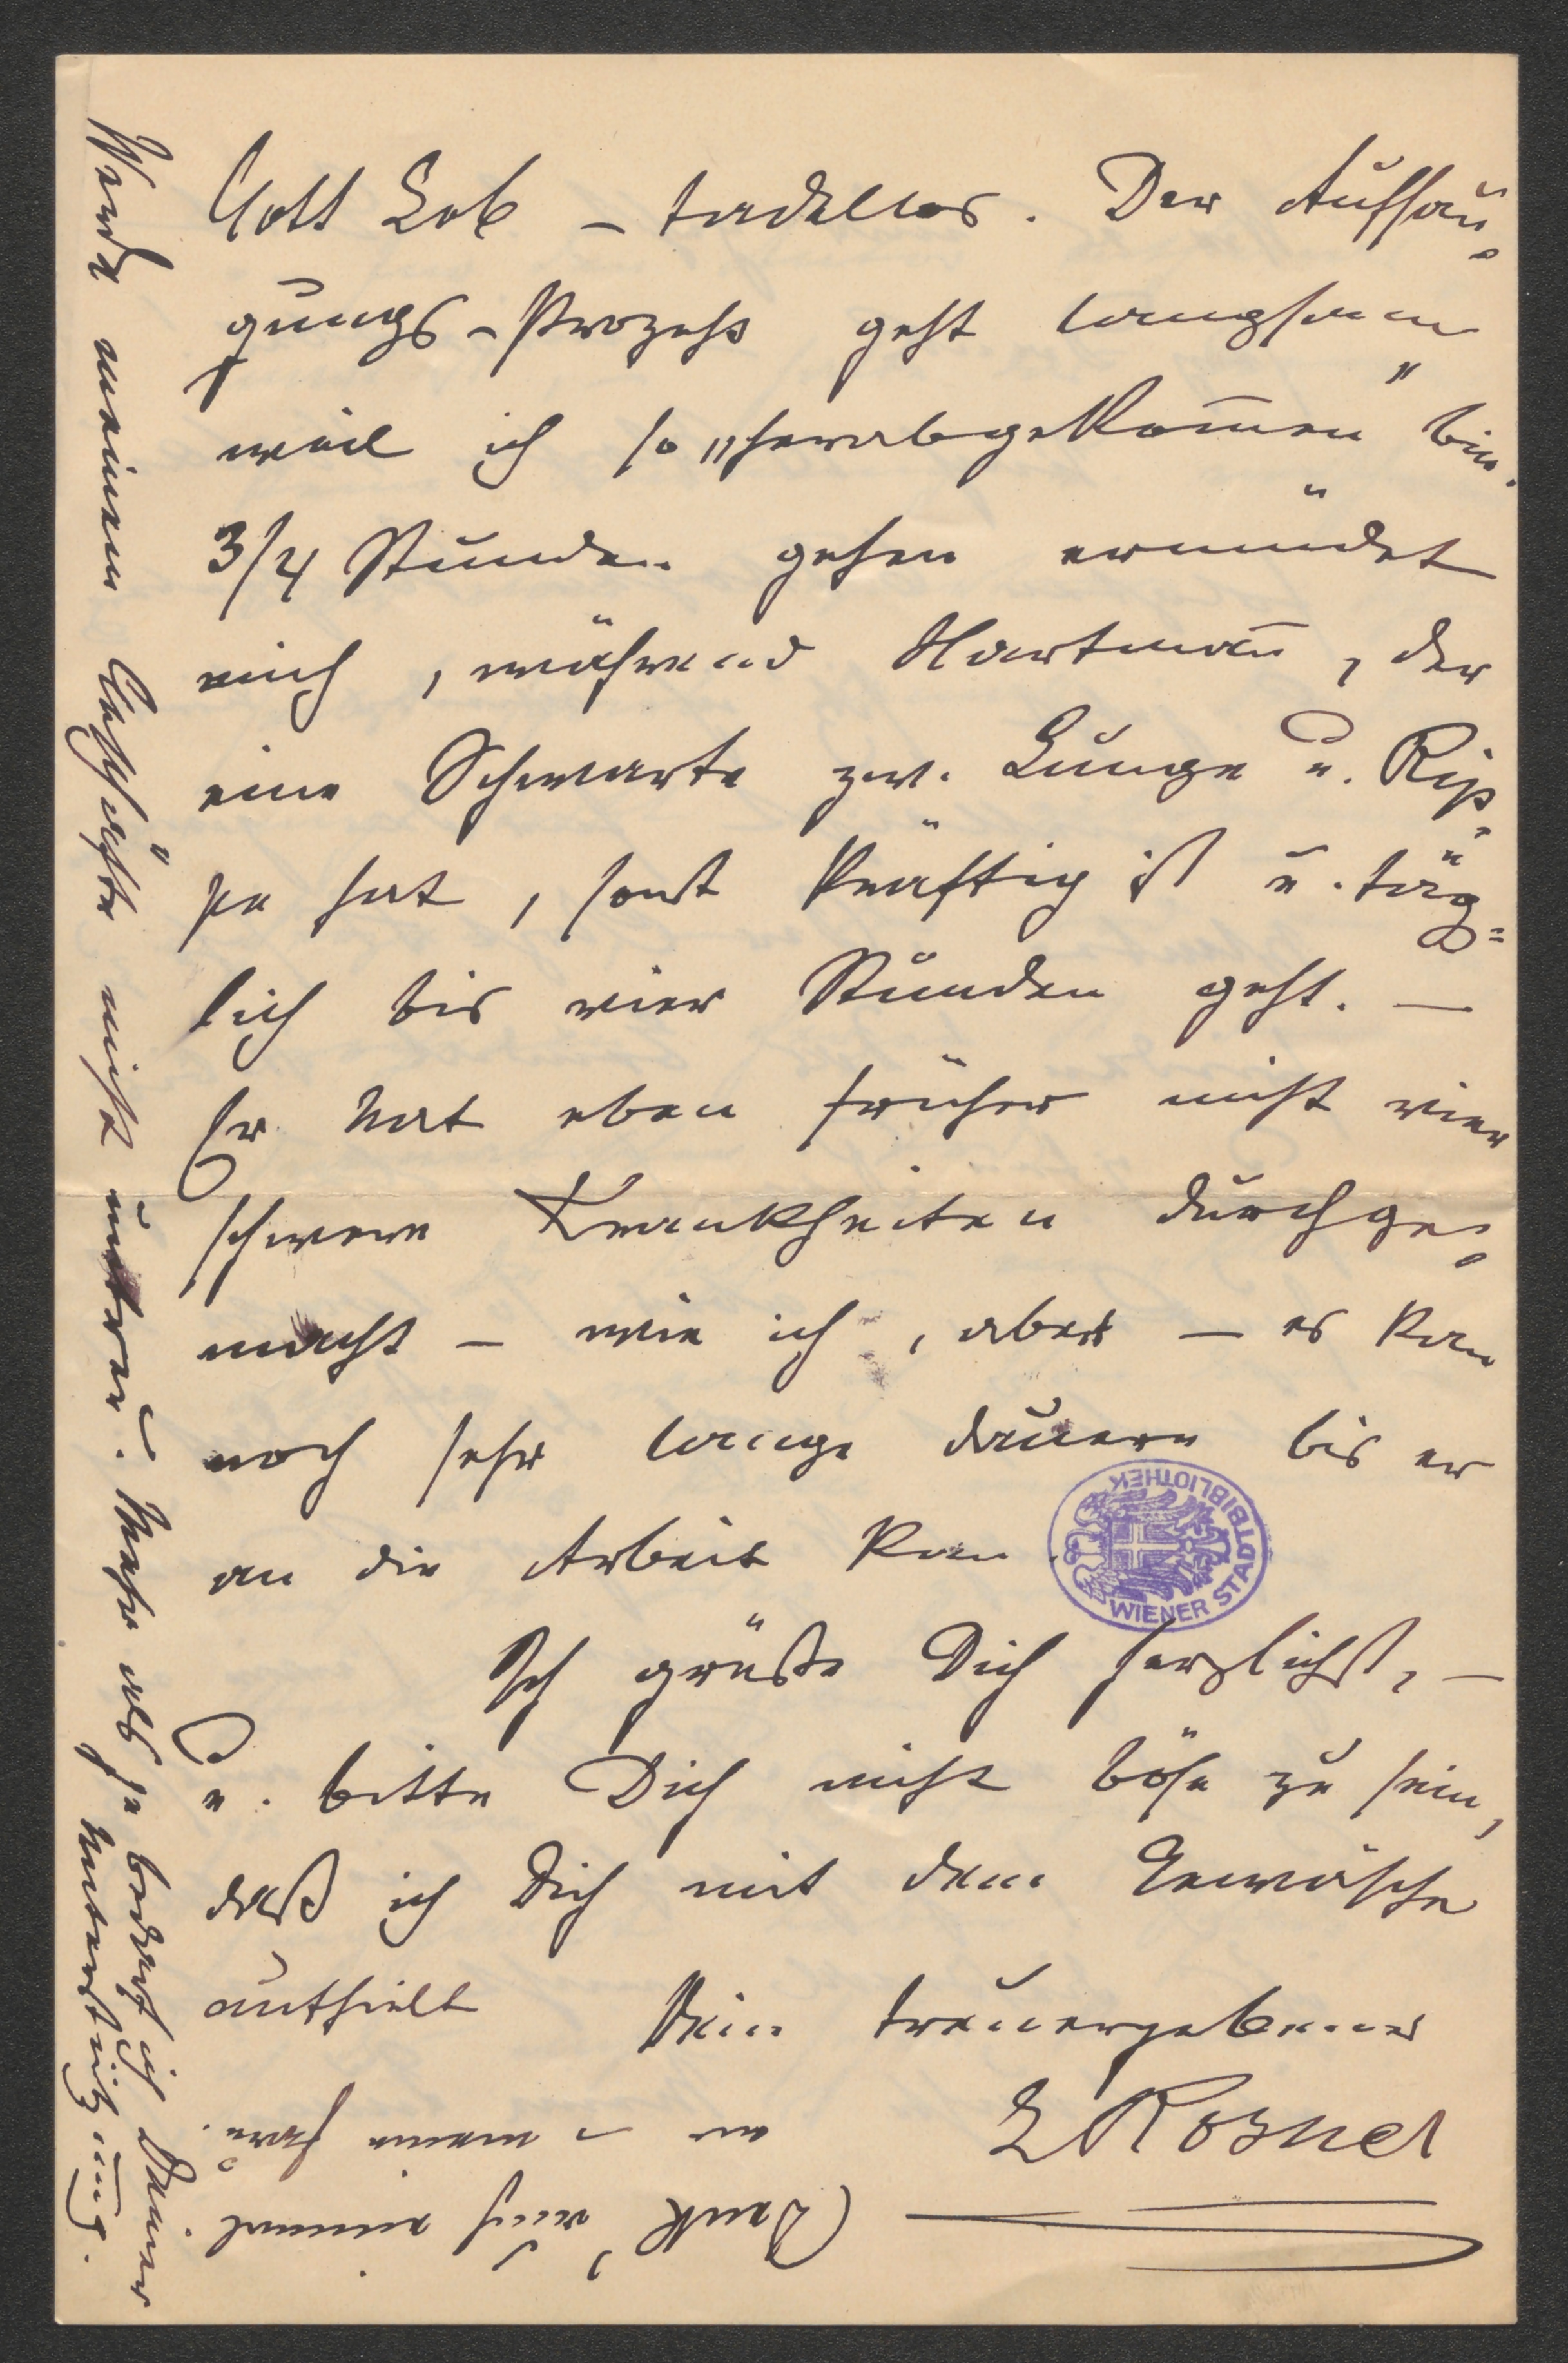 Gott Lob – tadellos. Der Aufsau-
gungs-Prozeß geht langsam
weil ich so „herabgekom̅en" bin.
3/4 Stunden gehen ermüdet
mich, während Hartman̅, der
eine Schwarte zw. Lunge u. Rip-
pe hat, sonst kräftig ist u. täg=
lich bis vier Stunden geht. —
Er hat eben früher nicht vier
schwere Krankheiten durchge-
macht – wie ich, aber — es kan
noch sehr lange dauern bis er
an die Arbeit kan.
Ich grüße Dich herzlichst, —
u. bitte Dich nicht böse zu sein,
daß ich Dich mit dem Gewäsche
aufhielt Dein treuergebener
L Rosner
Denk' auch einmal
an – meine
Werde meinem Geschäfte nicht untreu. Mehr als je bedarf ich Deiner
Unterstützung.
WIENER STADTBIBLIOTHEK